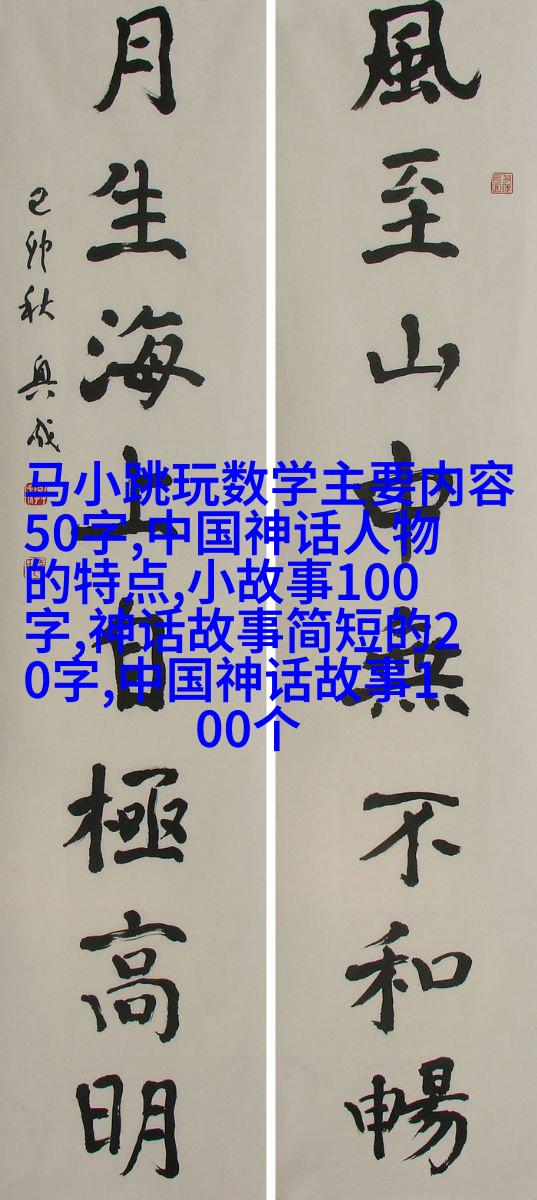 風至山中無不和暢
月生海上自極高明
己卯秋
马小跳玩数学主要内容
50字,中国神话人物
的特点,小故事100
字,神话故事简短的2
0字,中国神话故事1
00个